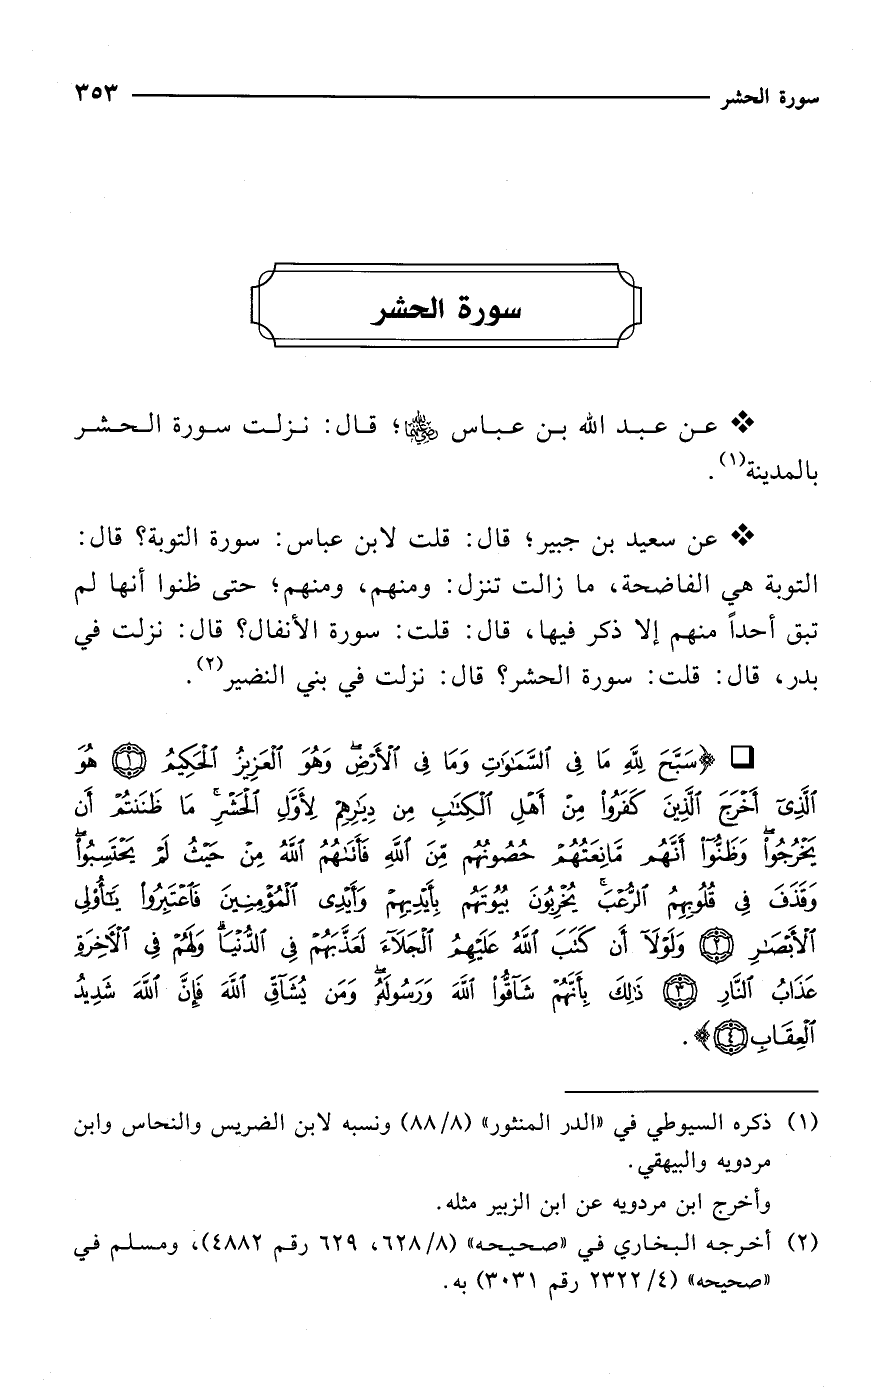 سورة الحشر ٣٥٣
سورة الحشر
❖ عن عبد الله بن عباس ﵄؛ قال: نزلت سورة الحشر
بالمدينة(١).
❖ عن سعيد بن جبير؛ قال: قلت لابن عباس: سورة التوبة؟ قال:
التوبة هي الفاضحة، ما زالت تنزل: ومنهم، ومنهم؛ حتى ظنوا أنها لم
تبق أحداً منهم إلا ذكر فيها، قال: قلت: سورة الأنفال؟ قال: نزلت في
بدر، قال: قلت: سورة الحشر؟ قال: نزلت في بني النضير(٢).
❏ ﴿سَبَّحَ لِلَّهِ مَا فِى ٱلسَّمَٰوَٰتِ وَمَا فِى ٱلْأَرْضِۖ وَهُوَ ٱلْعَزِيزُ ٱلْحَكِيمُ ۝١ هُوَ
ٱلَّذِىٓ أَخْرَجَ ٱلَّذِينَ كَفَرُوا۟ مِنْ أَهْلِ ٱلْكِتَٰبِ مِن دِيَٰرِهِمْ لِأَوَّلِ ٱلْحَشْرِۚ مَا ظَنَنتُمْ أَن
يَخْرُجُوا۟ۖ وَظَنُّوٓا۟ أَنَّهُم مَّانِعَتُهُمْ حُصُونُهُم مِّنَ ٱللَّهِ فَأَتَىٰهُمُ ٱللَّهُ مِنْ حَيْثُ لَمْ يَحْتَسِبُوا۟ۖ
وَقَذَفَ فِى قُلُوبِهِمُ ٱلرُّعْبَۚ يُخْرِبُونَ بُيُوتَهُم بِأَيْدِيهِمْ وَأَيْدِى ٱلْمُؤْمِنِينَ فَٱعْتَبِرُوا۟ يَٰٓأُو۟لِى
ٱلْأَبْصَٰرِ ۝٢ وَلَوْلَآ أَن كَتَبَ ٱللَّهُ عَلَيْهِمُ ٱلْجَلَآءَ لَعَذَّبَهُمْ فِى ٱلدُّنْيَاۖ وَلَهُمْ فِى ٱلْءَاخِرَةِ
عَذَابُ ٱلنَّارِ ۝٣ ذَٰلِكَ بِأَنَّهُمْ شَآقُّوا۟ ٱللَّهَ وَرَسُولَهُۥۖ وَمَن يُشَآقِّ ٱللَّهَ فَإِنَّ ٱللَّهَ شَدِيدُ
ٱلْعِقَابِ ۝٤﴾.
(١) ذكره السيوطي في «الدر المنثور» (٨٨/٨) ونسبه لابن الضريس والنحاس وابن
مردويه والبيهقي.
وأخرج ابن مردويه عن ابن الزبير مثله.
(٢) أخرجه البخاري في «صحيحه» (٦٢٨/٨، ٦٢٩ رقم ٤٨٨٢)، ومسلم في
«صحيحه» (٢٣٢٢/٤ رقم ٣٠٣١) به.